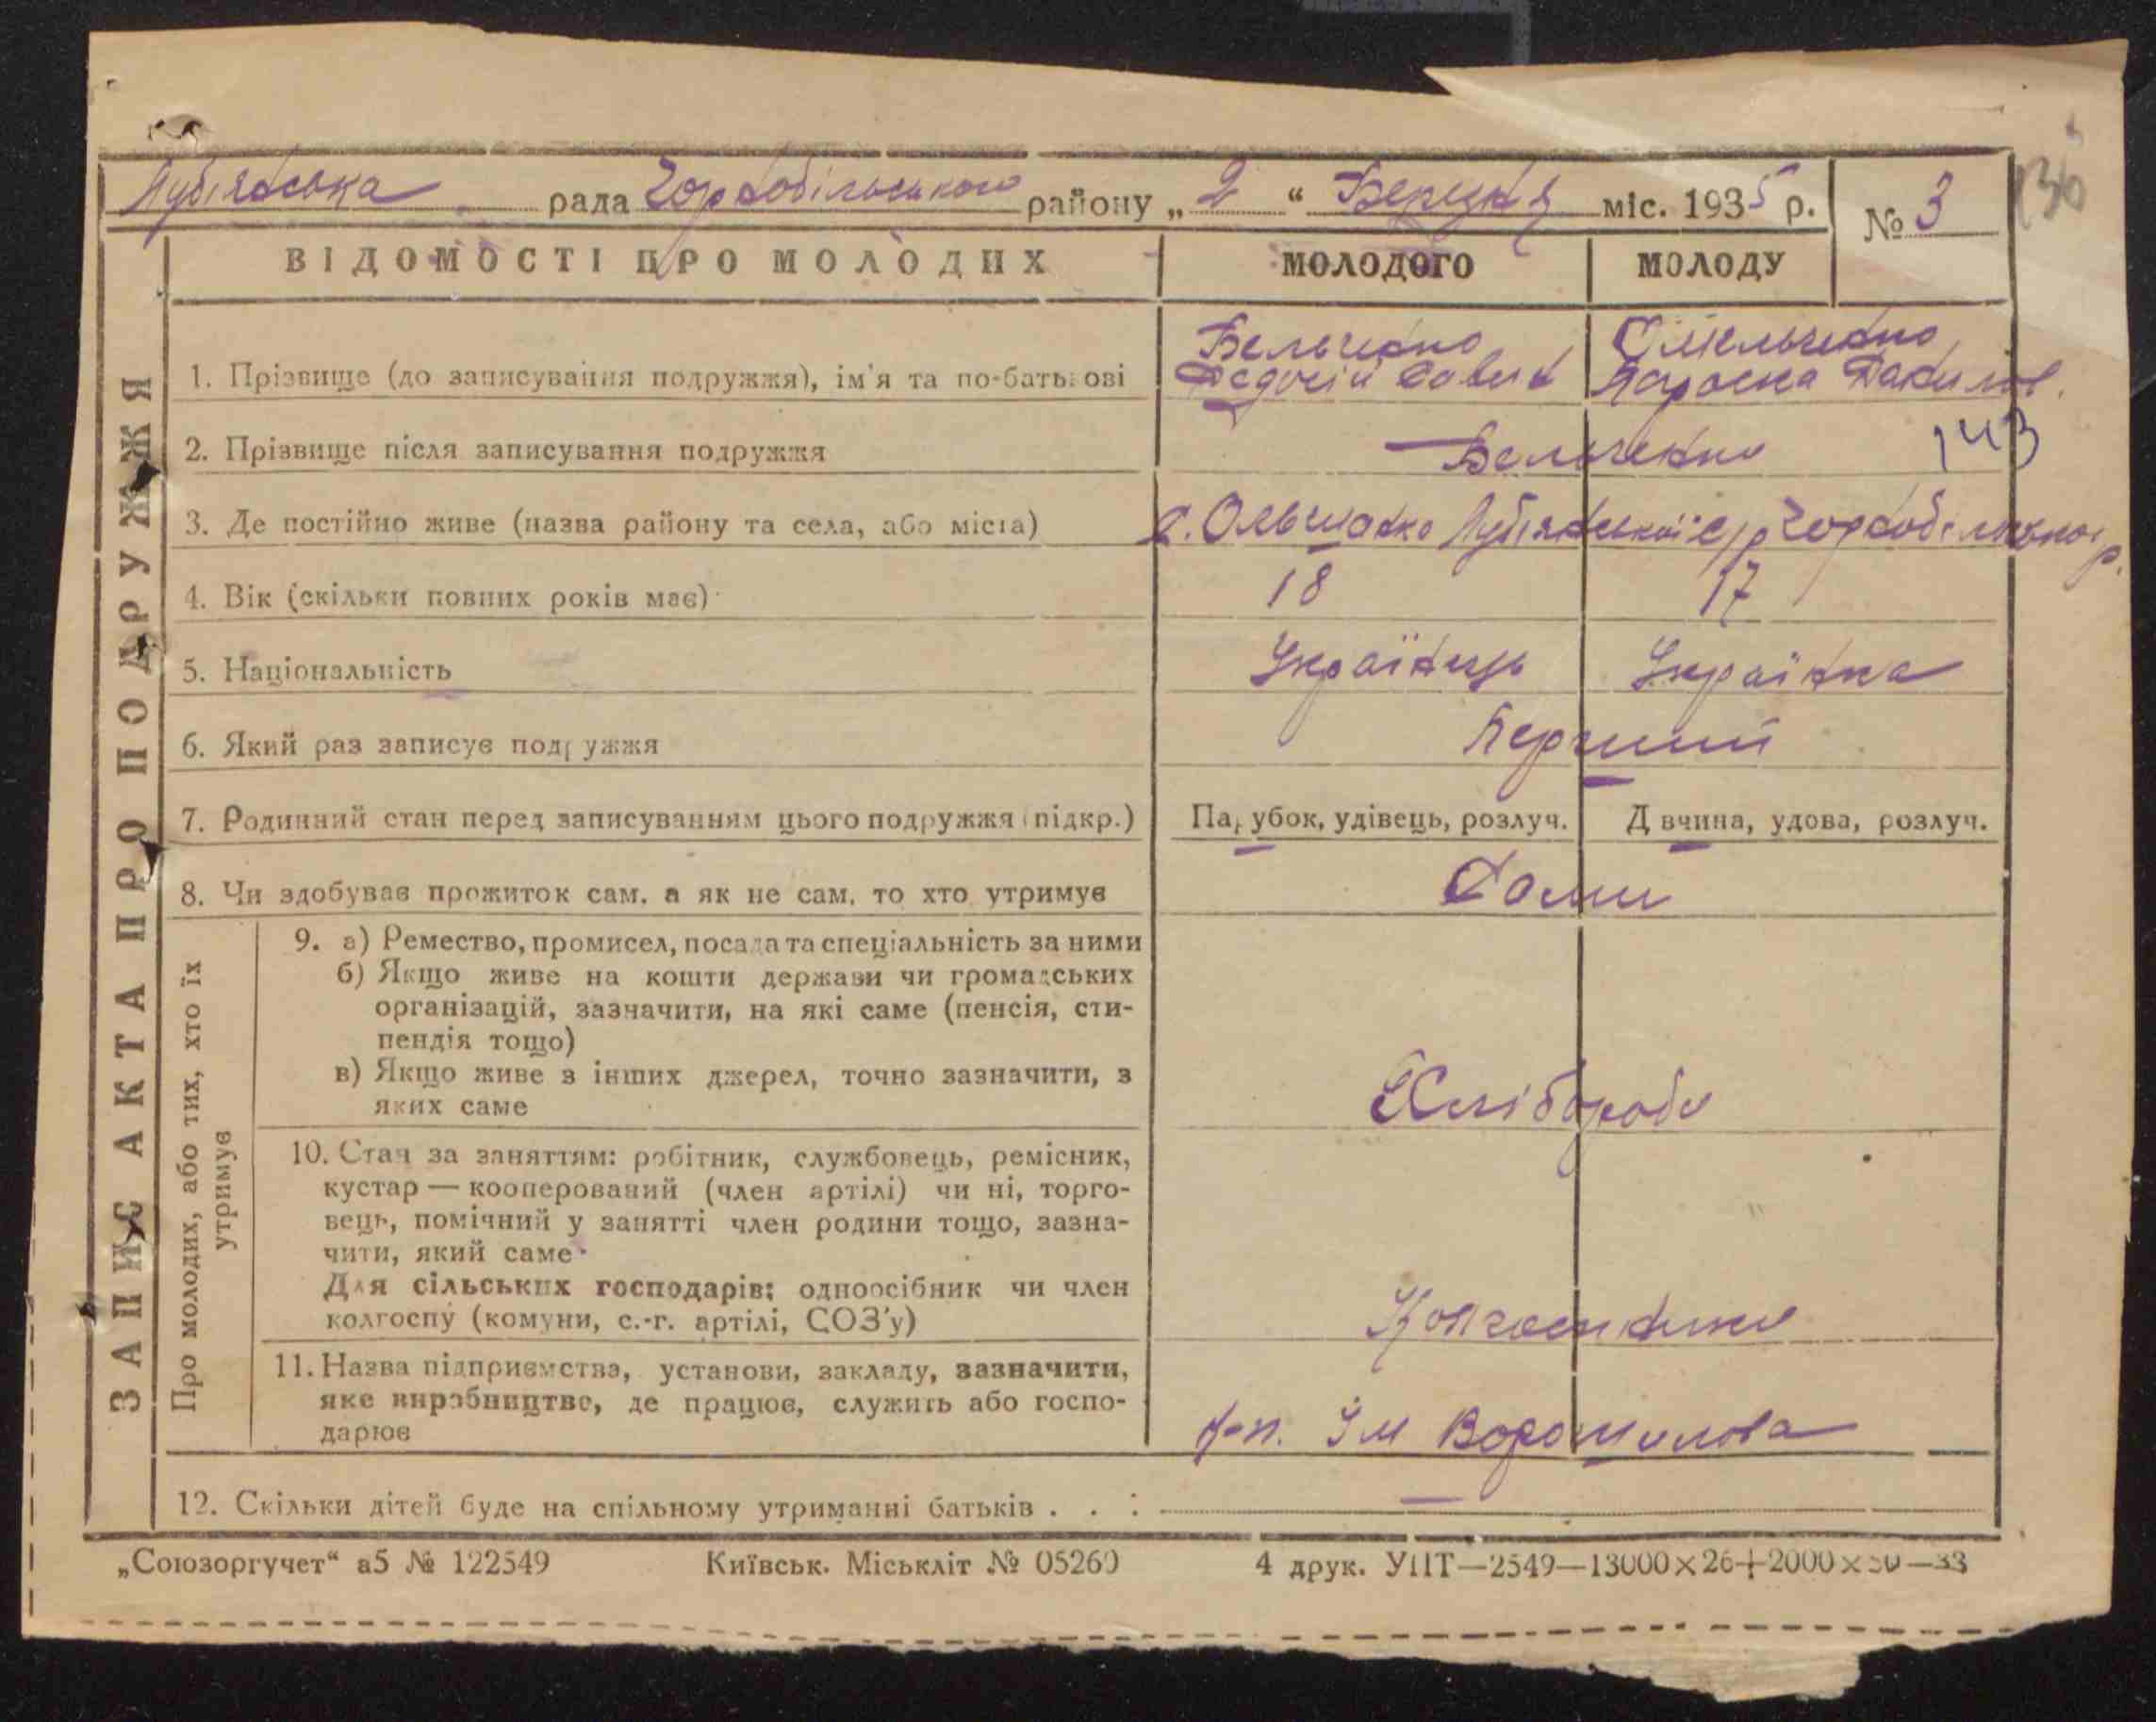 Луб'янська рада Чорнобільського району „2“ Березня міс. 1935 р. № 3
136
ВІДОМОСТІ ПРО МОЛОДИХ МОЛОДОГО МОЛОДУ
ЗАПИС АКТА ПРО ПОДРУЖЖЯ
Бельченко Омельченко
1. Прізвище (до записування подружжя), ім'я та по-батькові Федосій Савич Параска Данилов.
2. Прізвище після записування подружжя Бельченко 143
3. Де постійно живе (назва району та села, або міста) с. Ольшанка Луб'янської с/р Чорнобільського р.
4. Вік (скільки повних років має) 18 17
5. Національність Українець Українка
6. Який раз записує подружжя Перший
7. Родинний стан перед записуванням цього подружжя (підкр.) Парубок, удівець, розлуч. Дівчина, удова, розлуч.
8. Чи здобував прожиток сам, а як не сам, то хто утримує Сами
Про молодих, або тих, хто їх
утримує
9. а) Ремество, промисел, посада та спеціальність за ними
б) Якщо живе на кошти держави чи громадських
організацій, зазначити, на які саме (пенсія, сти-
пендія тощо)
в) Якщо живе з інших джерел, точно зазначити, з
яких саме Хлібороби
10. Стан за заняттям: робітник, службовець, ремісник,
кустар — кооперований (член артілі) чи ні, торго-
вець, помічний у занятті член родини тощо, зазна-
чити, який саме
Для сільських господарів: одноосібник чи член
колгоспу (комуни, с.-г. артілі, СОЗ'у) Колгоспники
11. Назва підприємства, установи, закладу, зазначити,
яке виробництво, де працює, служить або госпо-
дарює Ім Ворошилова
12. Скільки дітей буде на спільному утриманні батьків . . . —
„Союзоргучет“ а5 № 122549 Київськ. Міськліт № 05260 4 друк. УПТ—2549—13000×26+2000×50—33